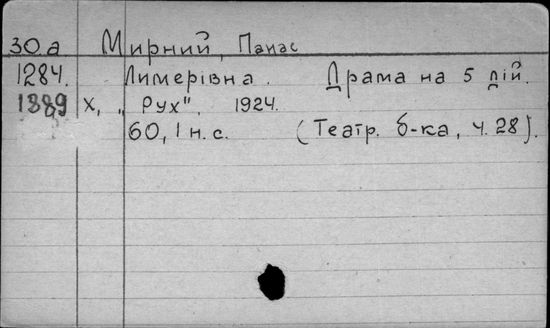 30.а Мирний, Панас
1284. Лимерівна. Драма на 5 дій.
1889 х, „Рух", 1924.
60, 1 н. с. (Театр. б-ка, ч. 28).